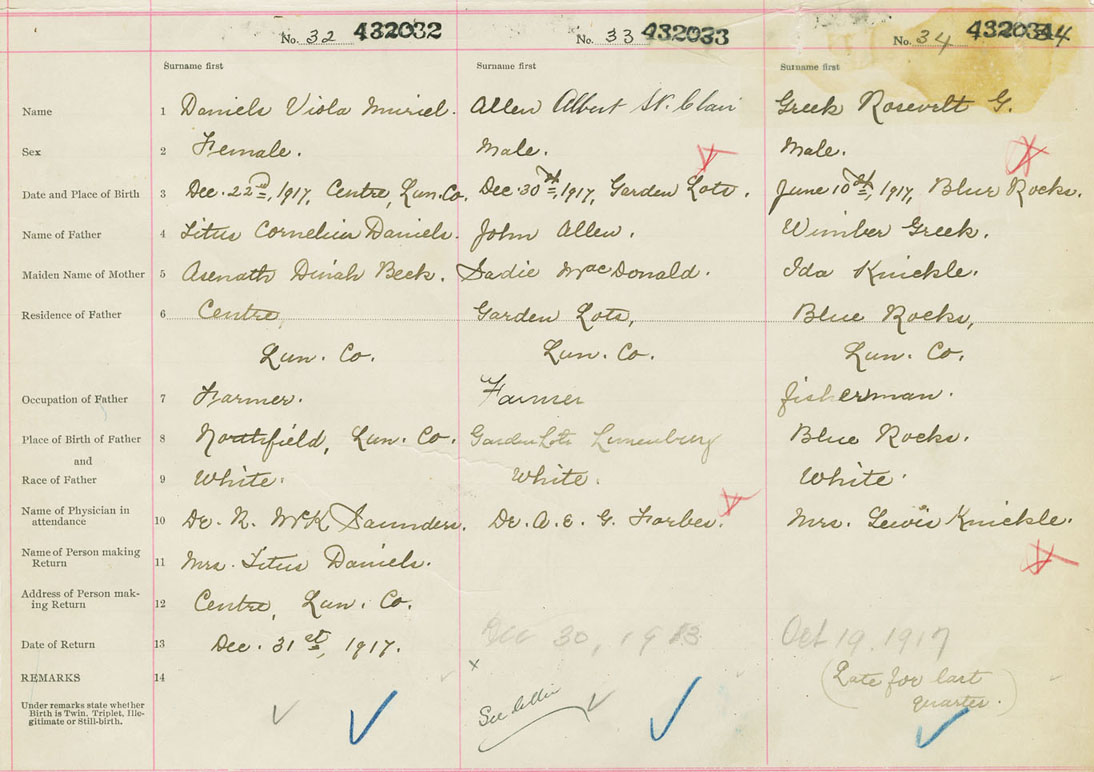 No. 32 432032 No. 33 432033 No. 34 432034
Surname first Surname first Surname first
Name 1 Daniels Viola Muriel. Allen Albert St. Clair Greek Rosevelt G.
Sex 2 Female. Male. Male.
Date and Place of Birth 3 Dec. 22nd, 1917, Centre, Lun. Co. Dec. 30th, 1917, Garden Lots. June 10th, 1917, Blue Rocks.
Name of Father 4 Titus Cornelius Daniels. John Allen. Wimber Greek.
Maiden Name of Mother 5 Asenath Dinah Beck. Sadie MacDonald. Ida Knickle.
Residence of Father 6 Centre, Garden Lots, Blue Rocks,
Lun. Co. Lun. Co. Lun. Co.
Occupation of Father 7 Farmer. Farmer fisherman.
Place of Birth of Father 8 Northfield, Lun. Co. Garden Lots Lunenburg Blue Rocks.
and
Race of Father 9 White. White. White.
Name of Physician in
attendance 10 Dr. N. McK Saunders. Dr. A. E. G. Forbes. Mrs. Lewis Knickle.
Name of Person making
Return 11 Mrs. Titus Daniels.
Address of Person mak-
ing Return 12 Centre, Lun. Co.
Date of Return 13 Dec. 31st, 1917. Dec 30, Oct 19, 1917
REMARKS 14 (Late for last
quarter.)
Under remarks state whether
Birth is Twin, Triplet, Ille-
gitimate or Still-birth.
See